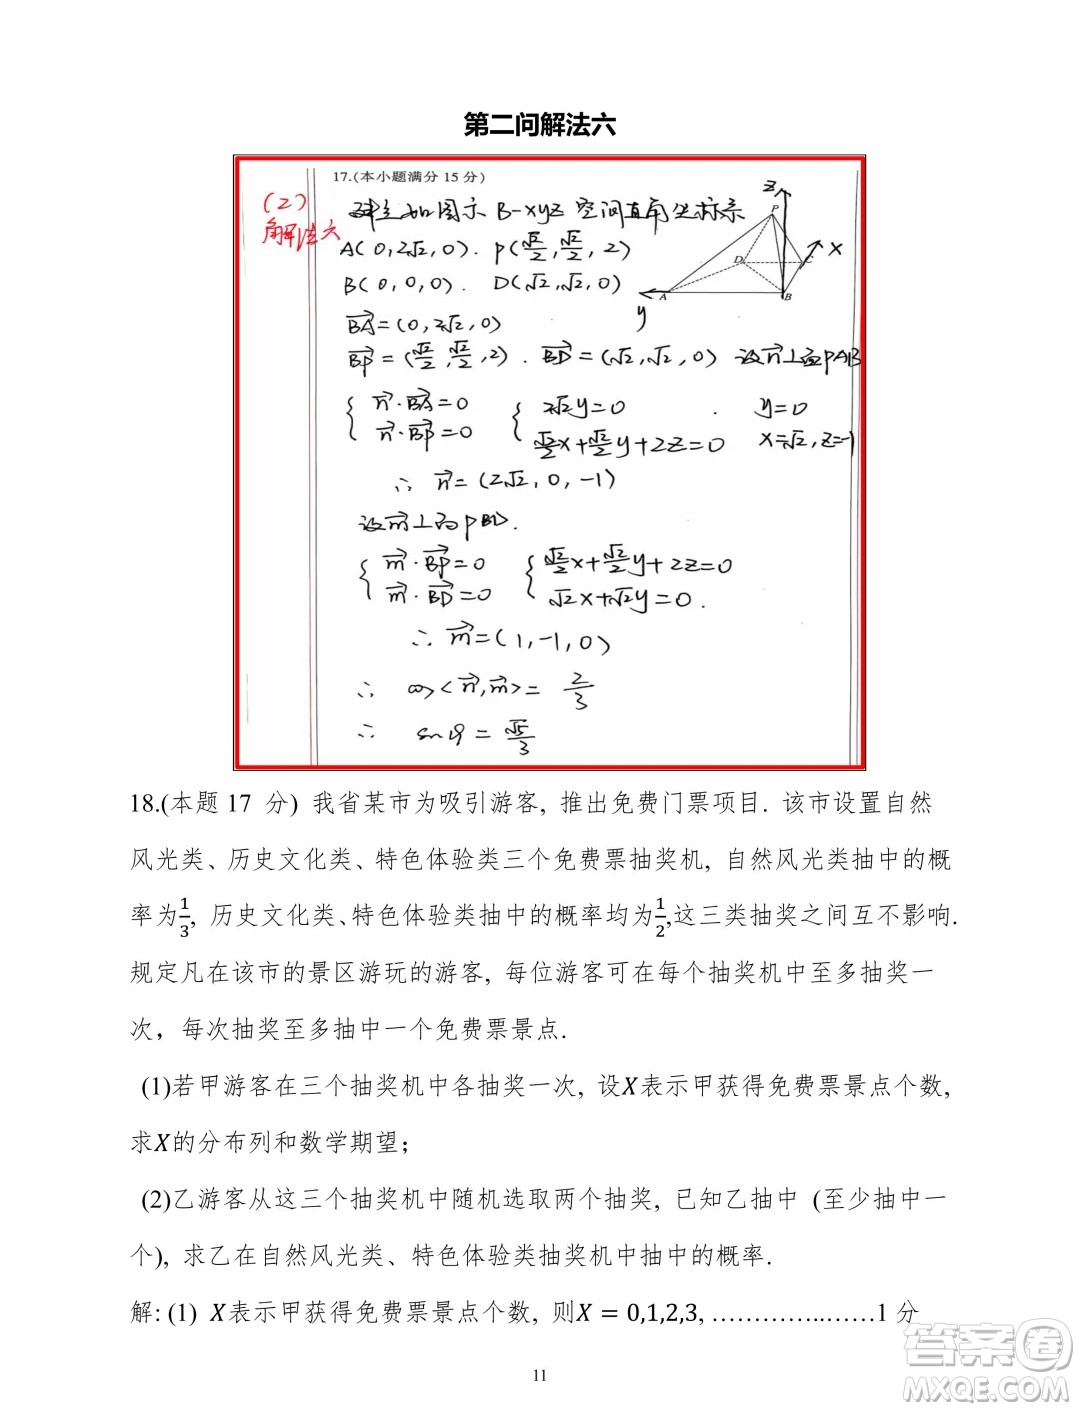 第二问解法六
17.(本小题满分 15 分)
(2)
解法六
建立如图示 B-xyz 空间直角坐标系
A(0,2√2,0). P(√2/2,√2/2,2)
B(0,0,0). D(√2,√2,0)
z
P
x
D
C
A
B
y
BA=(0,2√2,0)
BP=(√2/2,√2/2,2). BD=(√2,√2,0) 设n⊥面PAB
{ n·BA=0 { 2√2y=0 . y=0
n·BP=0 √2/2x+√2/2y+2z=0
∴ n=(2√2,0,-1)
设m⊥面PBD.
{ m·BP=0 { √2/2x+√2/2y+2z=0
m·BD=0 √2x+√2y=0.
∴ m=(1,-1,0)
∴ cos<n,m>= 2/3
∴ sinθ = √5/3
18.(本题 17 分) 我省某市为吸引游客, 推出免费门票项目. 该市设置自然
风光类、历史文化类、特色体验类三个免费票抽奖机, 自然风光类抽中的概
率为1/3, 历史文化类、特色体验类抽中的概率均为1/2,这三类抽奖之间互不影响.
规定凡在该市的景区游玩的游客, 每位游客可在每个抽奖机中至多抽奖一
次, 每次抽奖至多抽中一个免费票景点.
(1)若甲游客在三个抽奖机中各抽奖一次, 设X表示甲获得免费票景点个数,
求X的分布列和数学期望;
(2)乙游客从这三个抽奖机中随机选取两个抽奖, 已知乙抽中 (至少抽中一
个), 求乙在自然风光类、特色体验类抽奖机中抽中的概率.
解: (1) X表示甲获得免费票景点个数, 则X = 0,1,2,3, …………..……1 分
11
答案圈
MXQE.COM